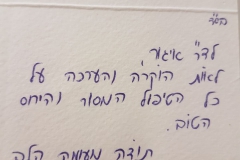 בס"ד
לד"ר איגור
לאות הוקרה והערכה על
כל הטיפול המסור והיחס
הטוב.
תודה מעומק הלב